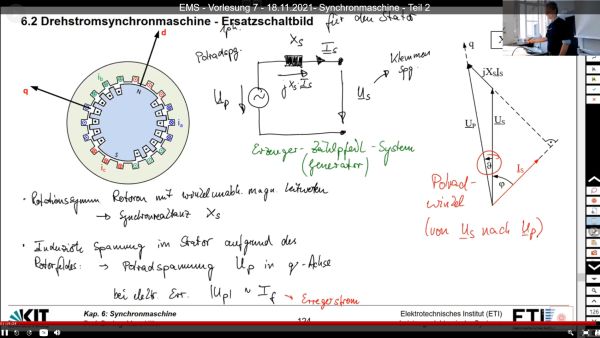 EMS - Vorlesung 7 - 18.11.2021- Synchronmaschine - Teil 2
6.2 Drehstromsynchronmaschine - Ersatzschaltbild
1ph.
für den Stator
Polradspg.
X_S
I_S
jX_S I_S
U_p
U_S
Klemmen
spg.
Erzeuger - Zählpfeil - System
(Generator)
d
q
N
S
i_b
i_a
i_c
q
jX_SI_S
U_P
U_S
ϑ
φ
I_S
Polrad-
winkel
(von U_S nach U_p)
· Rotationssymm Rotoren mit winkelunabh. magn. Leitwerten
→ Synchronreaktanz X_S
· Induzierte Spannung im Stator aufgrund des
Rotorfeldes: → Polradspannung U_p in q-Achse
bei elektr. Err. |U_p| ~ I_f → Erregerstrom
KIT
Kap. 6: Synchronmaschine
Elektrotechnisches Institut (ETI)
ETI
126